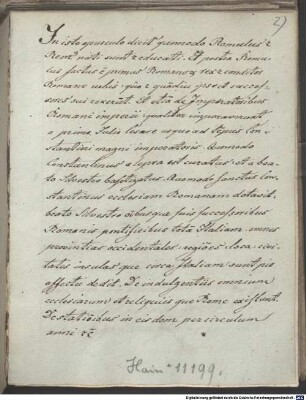 2)
In isto opusculo dicit' quomodo Romulus &
Rem' nati sunt & educati. Et postea Romu-
lus factus e' primus Romano4 rex & conditor
Romane urbis. qua & quadiu ipse & succes-
sores sui rexerunt. Et ista de Imperatoribus
Romani imperii qualiter imperaverunt
a primo Julio Cesare usque ad tepus Con-
stantini magni imperatoris. Quomodo
Constantinus a lepra est curatus. et a bea-
to Silvestro baptizatus. Quomodo sanctus Con-
stantinus ecclesiam Romanam dotavit.
beato Silvestro oibusque suis successoribus
Romanis pontificibus totā Italiam. omnes
provintias occidentales regiões loca. civi-
tates insulas que circa Italiam sunt pio
affectu dedit. De indulgentiis omnium
ecclesiarum et reliquiis que Rome existunt.
De stationibus in eisdem per circulum
anni &c
Hain * 11199.